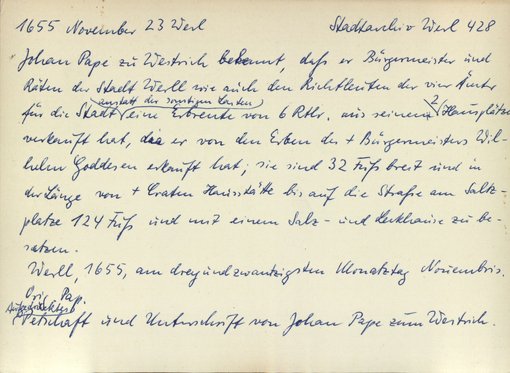 1655 November 23 Werl Stadtarchiv Werl 428
Johan Pape zu Westrich bekennt, daß er Bürgermeister und
Räten der Stadt Werll wie auch den Richtleuten der vier Ämter
anstatt der sonstigen Lasten
für die Stadt eine Erbrente von 6 Rtlr. aus seinem 2 Hausplätze
verkauft hat, die er von den Erben des + Bürgermeisters Wil-
helm Goddesen erkauft hat; sie sind 32 Fuß breit und in
der Länge von + Craten Hausstätte bis auf die Straße am Saltz-
platze 124 Fuß und mit einem Salz- und Leckhause zu be-
setzen.
Werll, 1655, am dreyundzwantzigsten Monatztag Nouembris.
Orig. Pap.
Aufgedrücktes
Petschaft und Unterschrift von Johan Pape zum Westrich.